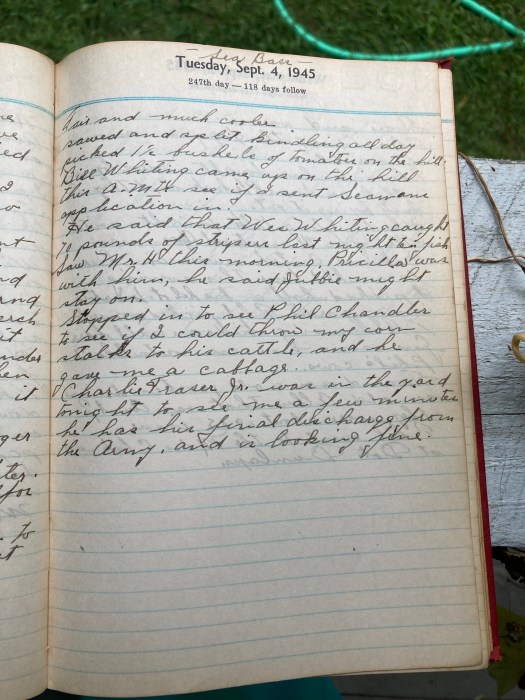 Sea Bass
Tuesday, Sept. 4, 1945
247th day — 118 days follow
Fair and much cooler
sawed and split kindling all day
picked 1½ bushels of tomatoes on the hill.
Bill Whiting came up on the hill
this A.M. to see if I sent Seamans
application in.
He said that Wes Whiting caught
70 pounds of stripers last night 6 fish
Saw Mr. H this morning, Priscilla was
with him, he said Jubbie might
stay on.
Stopped in to see Phil Chandler
to see if I could throw my corn
stalks to his cattle, and he
gave me a cabbage.
Charlie Fraser Jr. was in the yard
tonight to see me a few minutes
he has his final discharge from
the Army, and is looking fine.